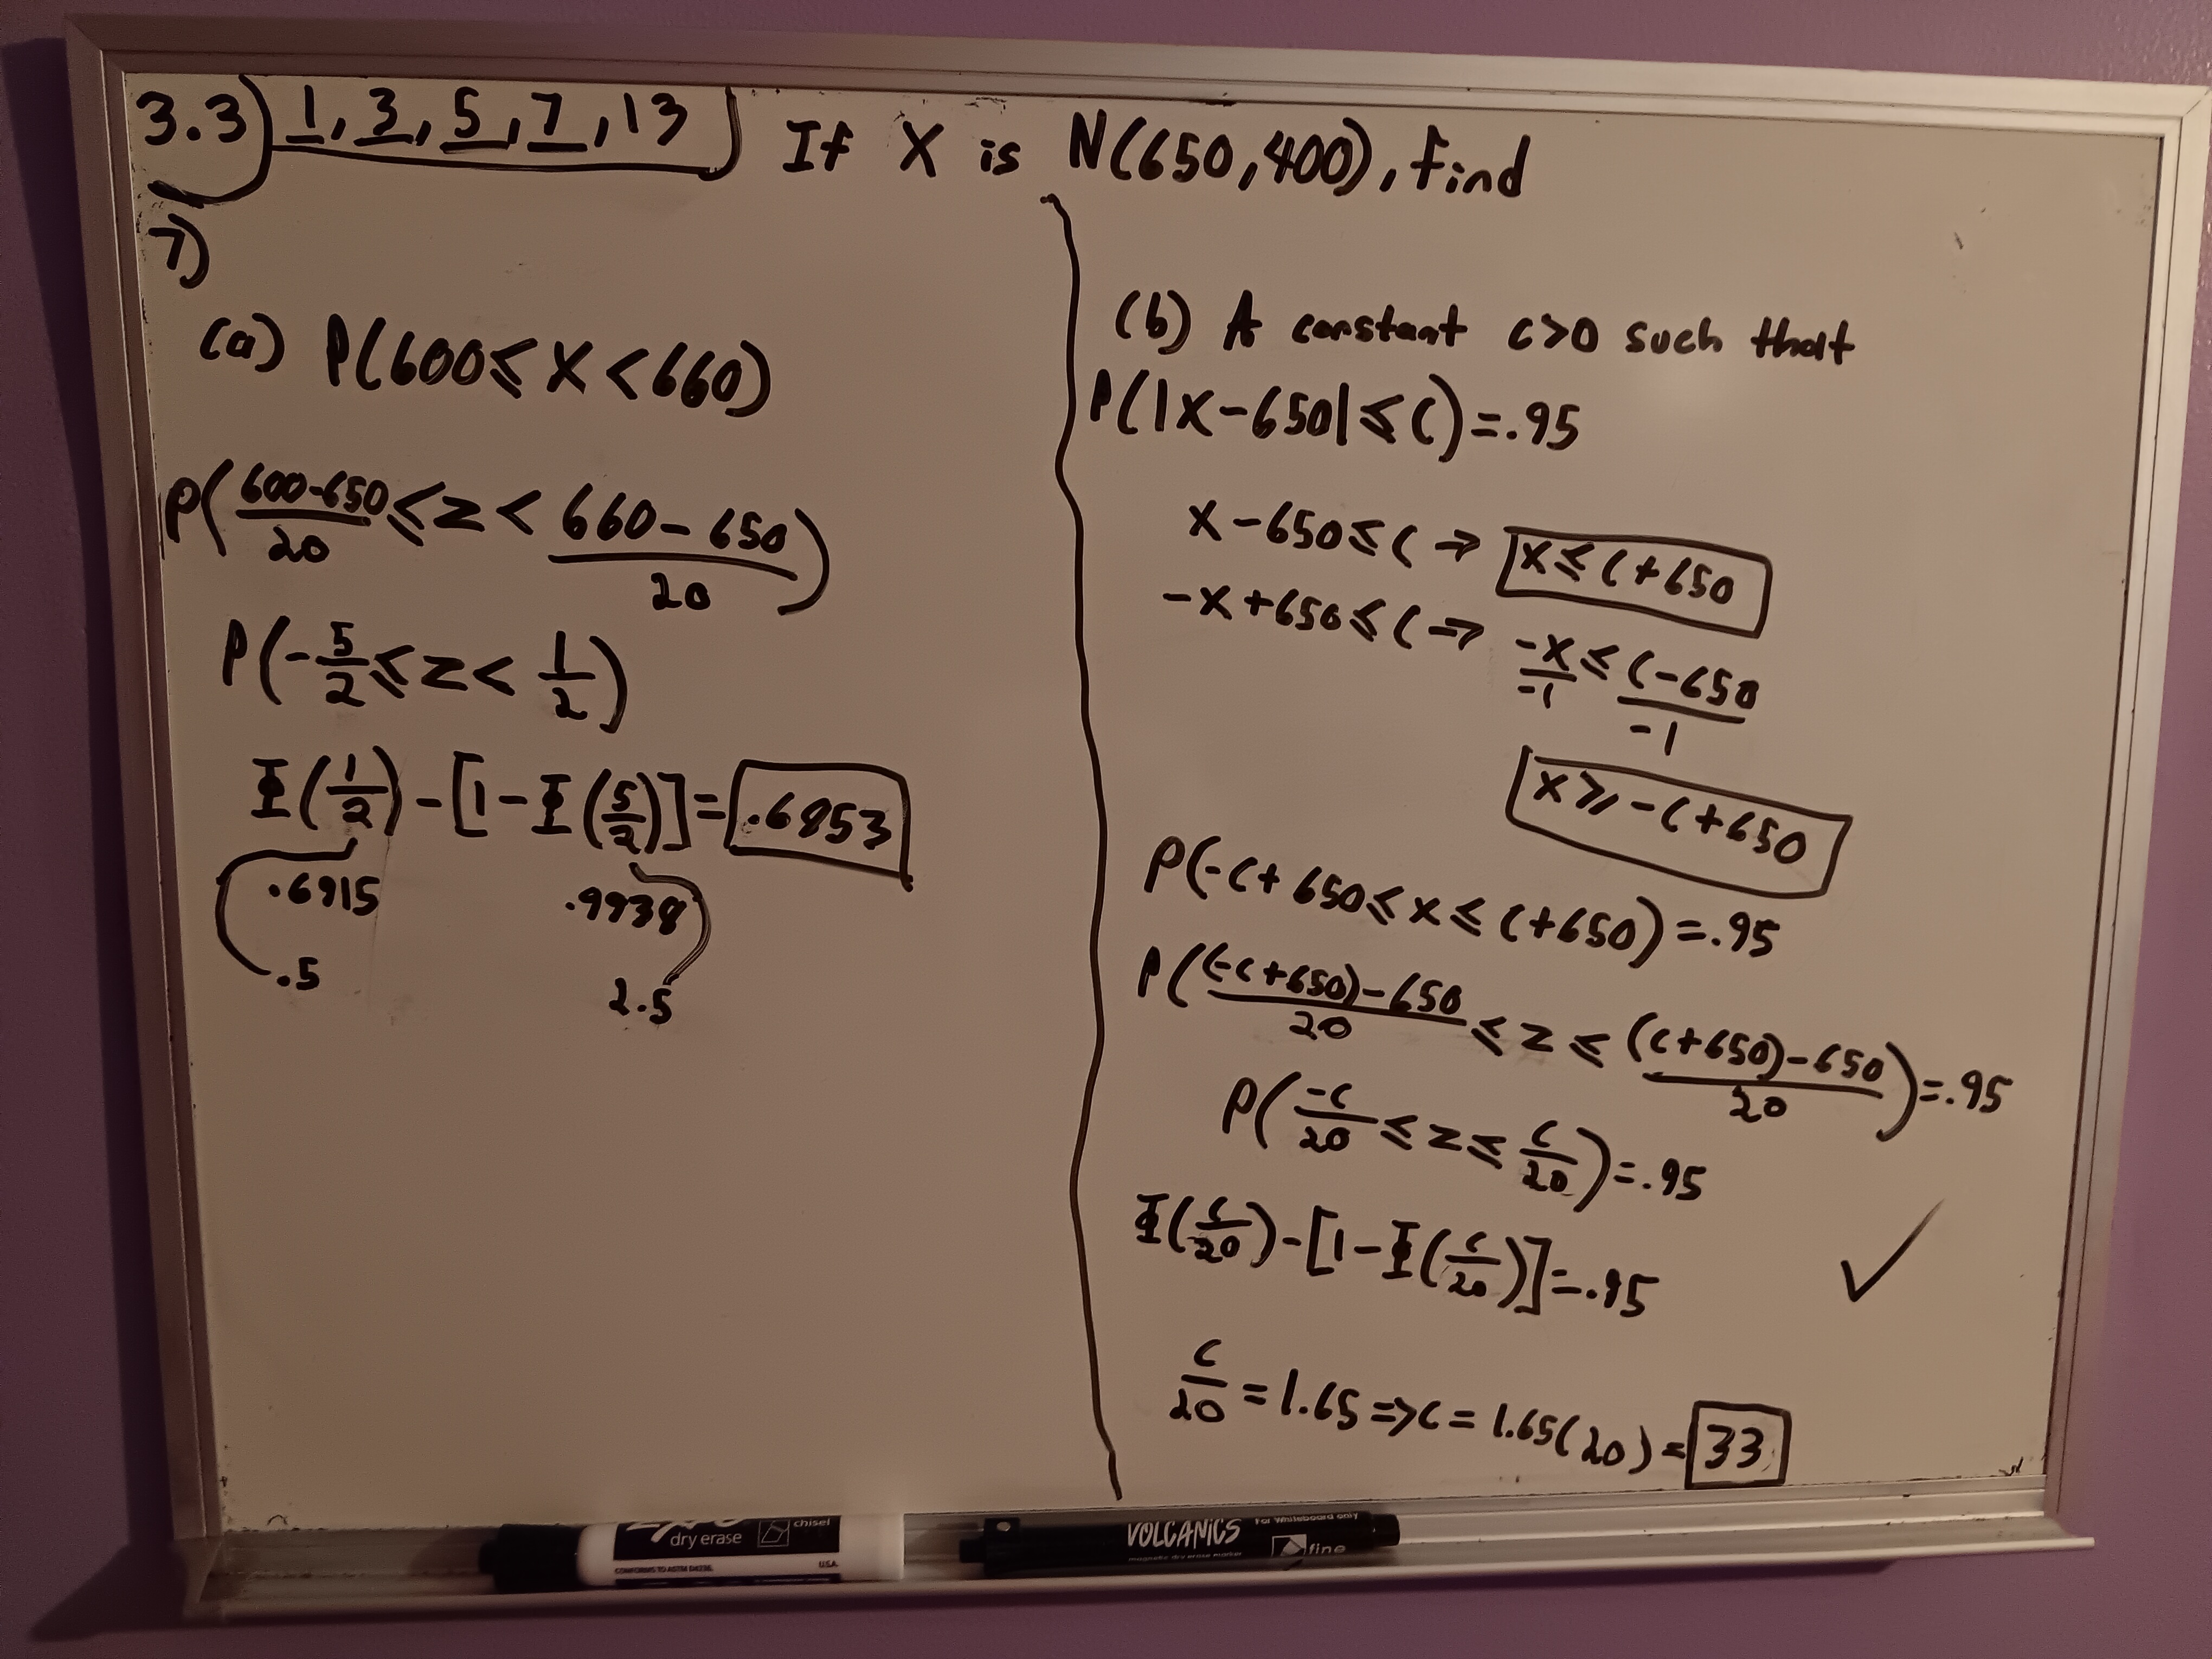 3.3) 1, 3, 5, 7, 13) If X is N(650,400), find
7)
(a) P(600≤X<660)
P((600-650)/20 ≤ z < (660-650)/20)
P(-5/2 ≤ z < 1/2)
Φ(1/2) - [1-Φ(5/2)] = .6853
.6915 .9938
.5 2.5
(b) A constant c>0 such that
P(|X-650|≤c)=.95
x-650≤c → x≤c+650
-x+650≤c → -x/-1 ≤ (c-650)/-1
x≥-c+650
P(-c+650≤x≤c+650)=.95
P(((-c+650)-650)/20 ≤ z ≤ ((c+650)-650)/20)=.95
P(-c/20 ≤ z ≤ c/20)=.95
Φ(c/20)-[1-Φ(c/20)]=.95
✓
c/20 = 1.65 ⇒ c = 1.65(20) = 33
dry erase
chisel
CONFORMS TO ASTM D4236.
U.S.A.
VOLCANICS
For Whiteboard only
magnetic dry erase marker
fine